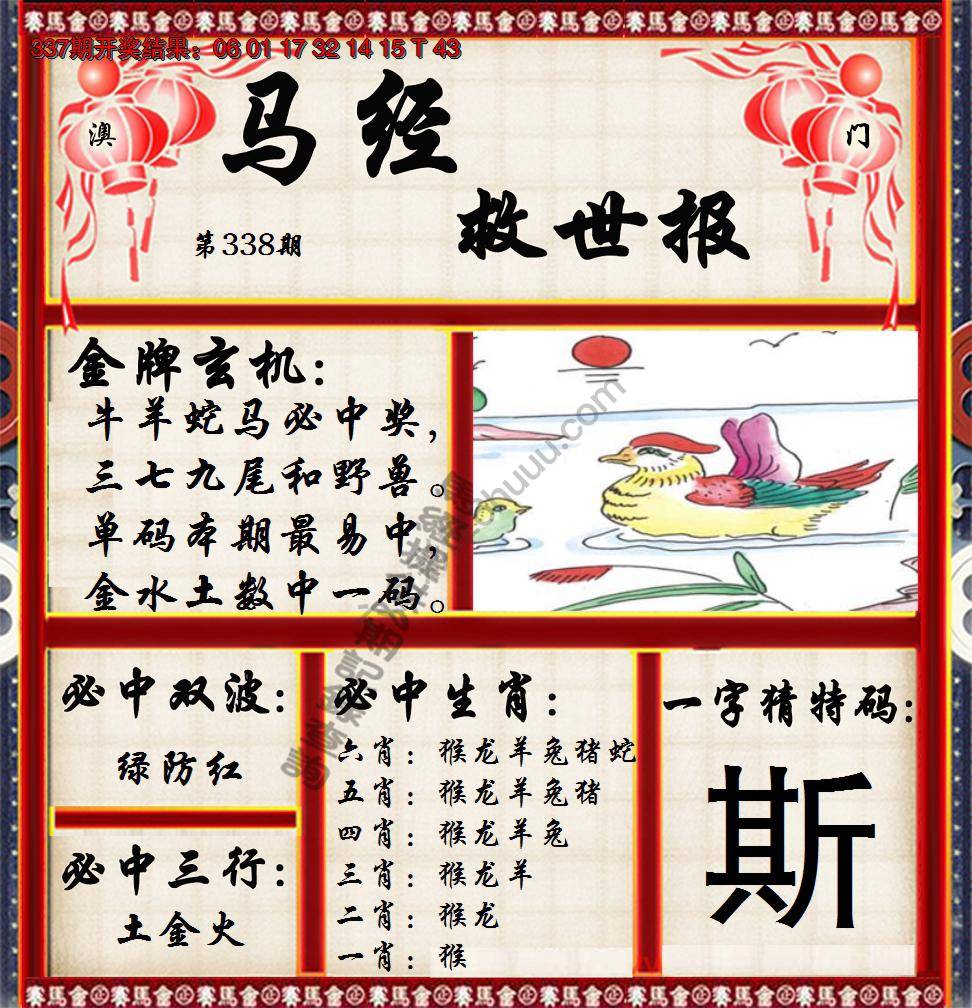 赛馬會
337期开奖结果：06 01 17 32 14 15 T 43
澳
门
马经
救世报
第338期
金牌玄机：
牛羊蛇马必中奖，
三七九尾和野兽。
单码本期最易中，
金水土数中一码。
必中双波：
绿防红
必中三行：
土金火
必中生肖：
六肖：猴龙羊兔猪蛇
五肖：猴龙羊兔猪
四肖：猴龙羊兔
三肖：猴龙羊
二肖：猴龙
一肖：猴
一字猜特码：
斯